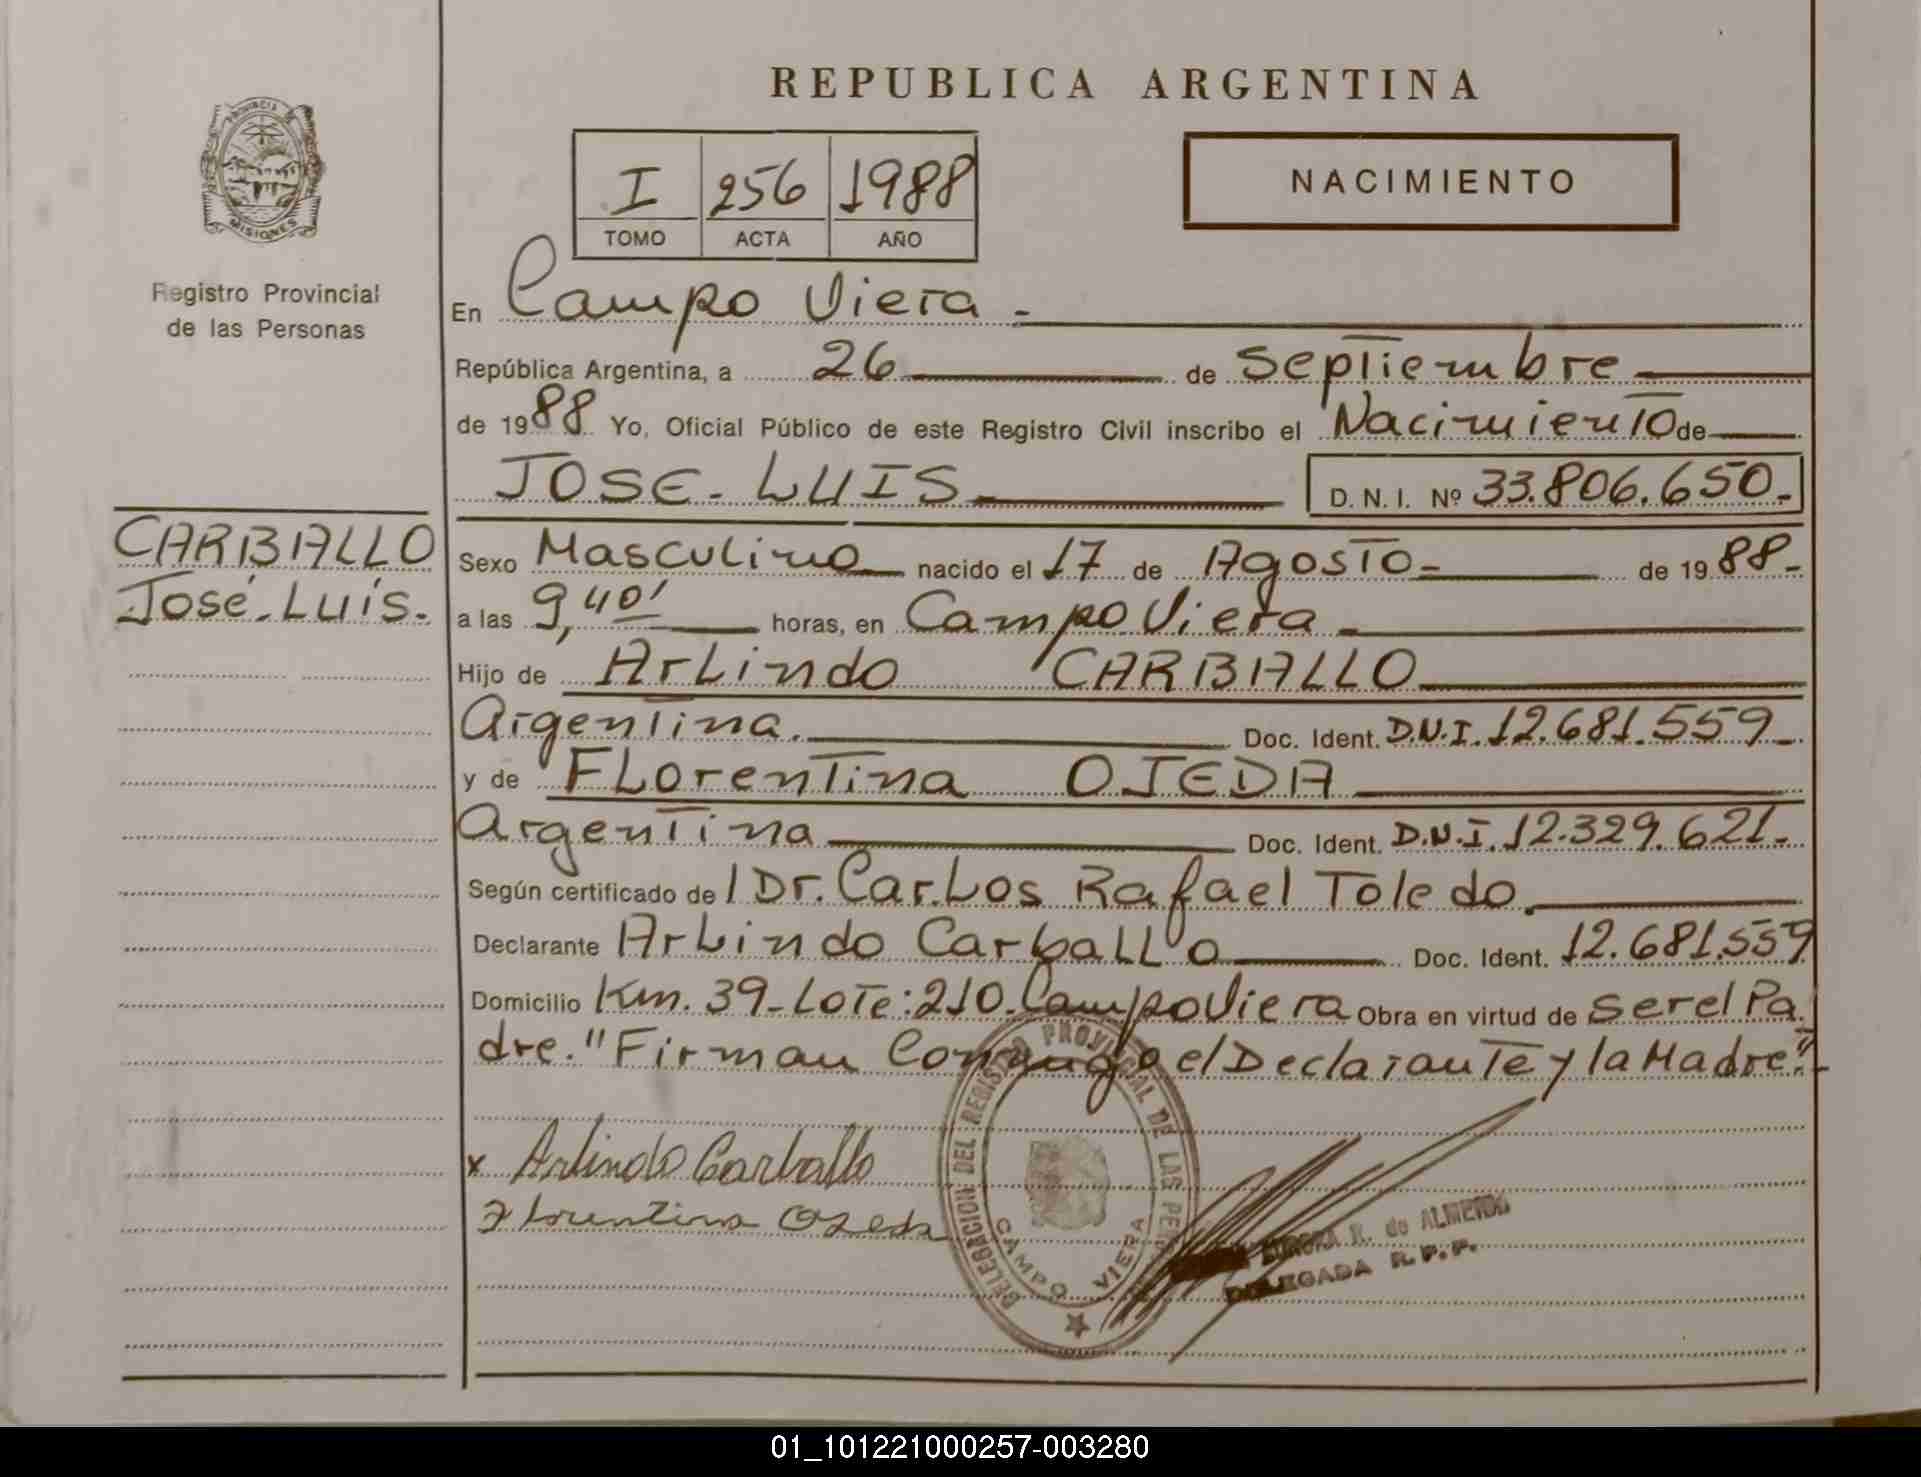 REPUBLICA ARGENTINA
PROVINCIA DE
MISIONES
Registro Provincial
de las Personas
I 256 1988
TOMO ACTA AÑO
NACIMIENTO
En Campo Viera.
República Argentina, a 26 de Septiembre
de 1988 Yo, Oficial Público de este Registro Civil inscribo el Nacimiento de
JOSE-LUIS D. N. I. Nº 33.806.650.-
CARBALLO
José-Luis.
Sexo Masculino nacido el 17 de Agosto- de 1988-
a las 9,40' horas, en Campo Viera
Hijo de Arlindo CARBALLO
Argentina. Doc. Ident. D.N.I. 12.681.559-
y de FLorentina OJEDA
Argentina Doc. Ident. D.N.I. 12.329.621-
Según certificado del Dr. CarLos Rafael Toledo.
Declarante ArLindo CarbaLLo Doc. Ident. 12.681.559
Domicilio Km. 39-Lote:210-Campo Viera Obra en virtud de ser el Pa
dre. "Firman Conmigo el Declarante y la Madre".-
x Arlindo Carballo
Florentina Ojeda
DELEGACION DEL REGISTRO PROVINCIAL DE LAS PE
CAMPO VIERA
AURORA R. de ALMEIDA
DELEGADA R.P.P.
01_101221000257-003280